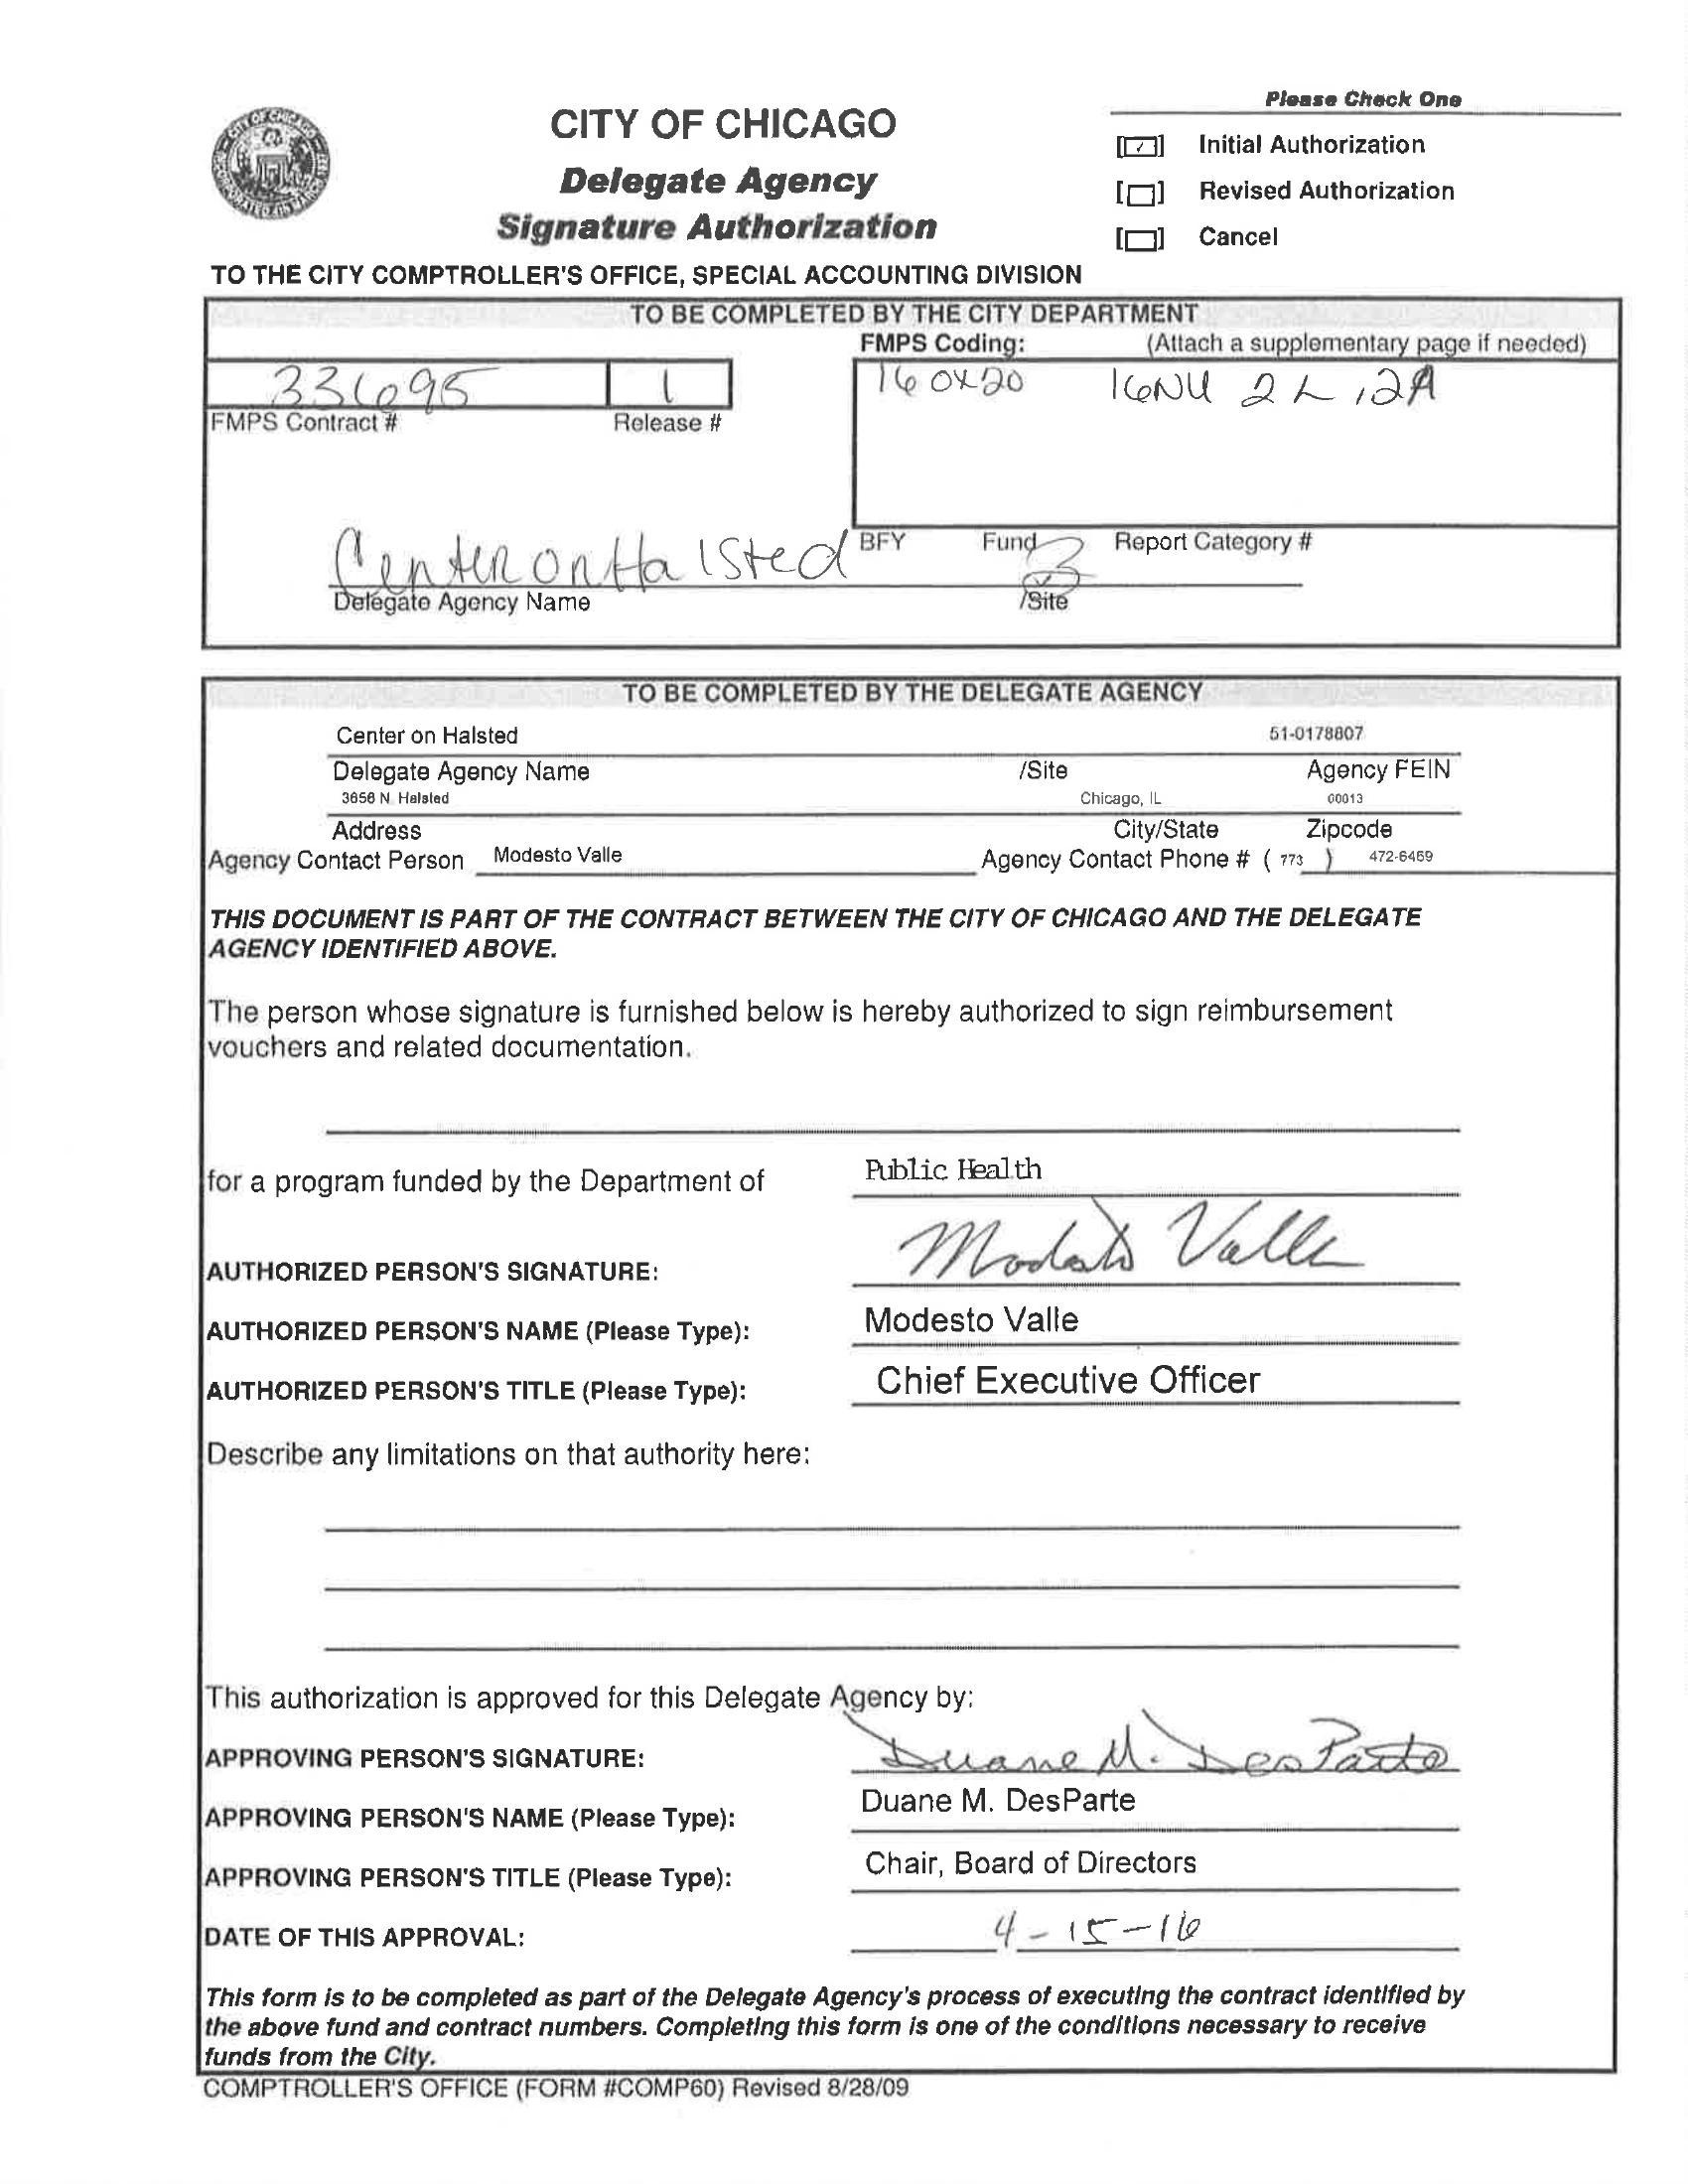 Please Check One
CITY OF CHICAGO
[✓] Initial Authorization
Delegate Agency
[ ] Revised Authorization
Signature Authorization
[ ] Cancel
TO THE CITY COMPTROLLER'S OFFICE, SPECIAL ACCOUNTING DIVISION
TO BE COMPLETED BY THE CITY DEPARTMENT
FMPS Coding: (Attach a supplementary page if needed)
33695 1 16 0X20 16NU 2L, 2A
FMPS Contract # Release #
BFY Fund Report Category #
Center on Halsted 3
Delegate Agency Name /Site
TO BE COMPLETED BY THE DELEGATE AGENCY
Center on Halsted 51-0178807
Delegate Agency Name /Site Agency FEIN
3656 N. Halsted Chicago, IL 60613
Address City/State Zipcode
Agency Contact Person Modesto Valle Agency Contact Phone # ( 773 ) 472-6469
THIS DOCUMENT IS PART OF THE CONTRACT BETWEEN THE CITY OF CHICAGO AND THE DELEGATE
AGENCY IDENTIFIED ABOVE.
The person whose signature is furnished below is hereby authorized to sign reimbursement
vouchers and related documentation.
for a program funded by the Department of Public Health
AUTHORIZED PERSON'S SIGNATURE: Modesto Valle
AUTHORIZED PERSON'S NAME (Please Type): Modesto Valle
AUTHORIZED PERSON'S TITLE (Please Type): Chief Executive Officer
Describe any limitations on that authority here:
This authorization is approved for this Delegate Agency by:
APPROVING PERSON'S SIGNATURE: Duane M. DesParte
APPROVING PERSON'S NAME (Please Type): Duane M. DesParte
APPROVING PERSON'S TITLE (Please Type): Chair, Board of Directors
DATE OF THIS APPROVAL: 4-15-16
This form is to be completed as part of the Delegate Agency's process of executing the contract identified by
the above fund and contract numbers. Completing this form is one of the conditions necessary to receive
funds from the City.
COMPTROLLER'S OFFICE (FORM #COMP60) Revised 8/28/09